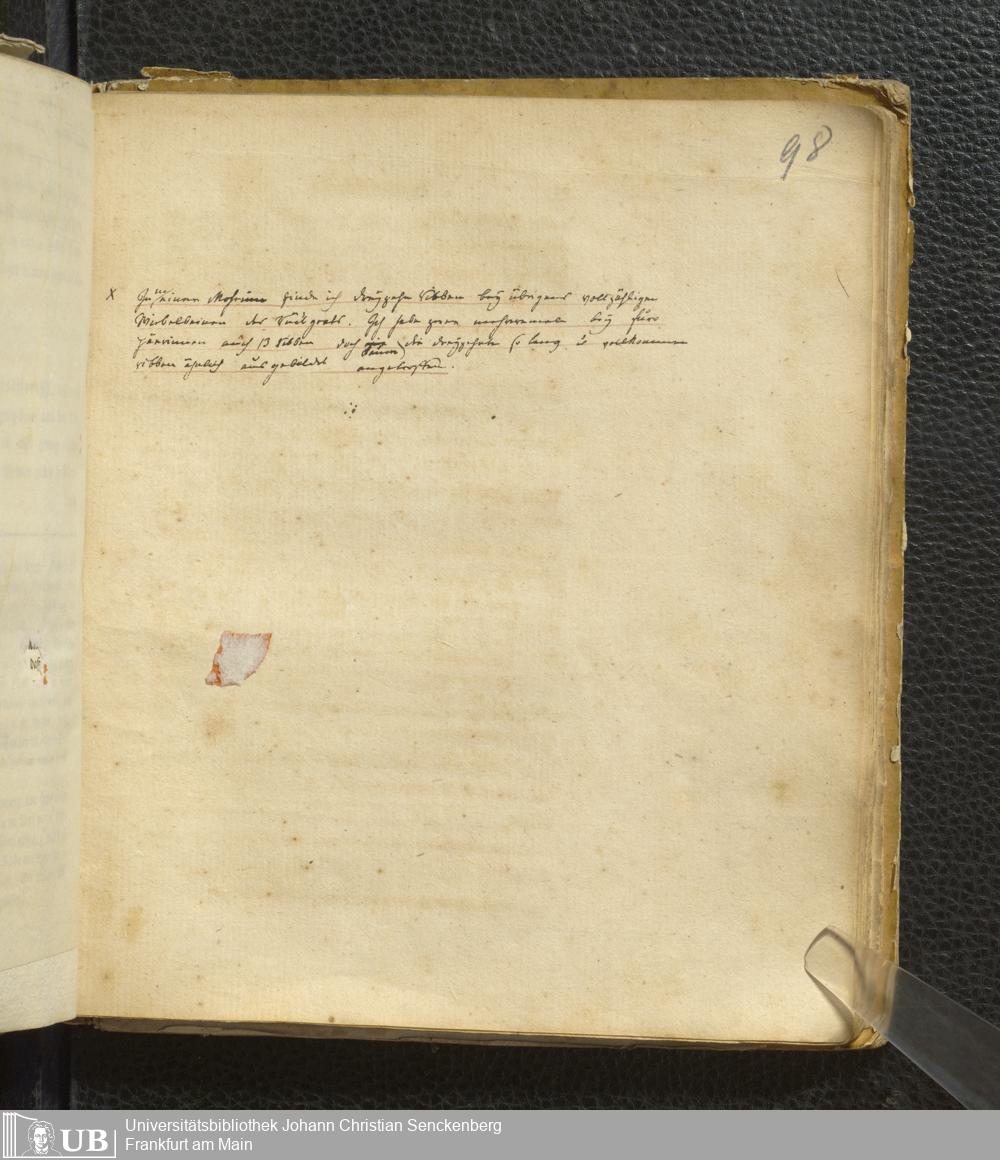 98
x In meiner Mohrinn finde ich dreyzehn Ribben bey übrigens vollzähligen
Wirbelbeinen des Rückgrats. Ich habe zwar mehrmal bey Euro
päerinnen auch 13 Ribben doch kaum die dreyzehnte so lang u vollkommen
ribben ähnlich ausgebildet angetroffen.
UB
Universitätsbibliothek Johann Christian Senckenberg
Frankfurt am Main